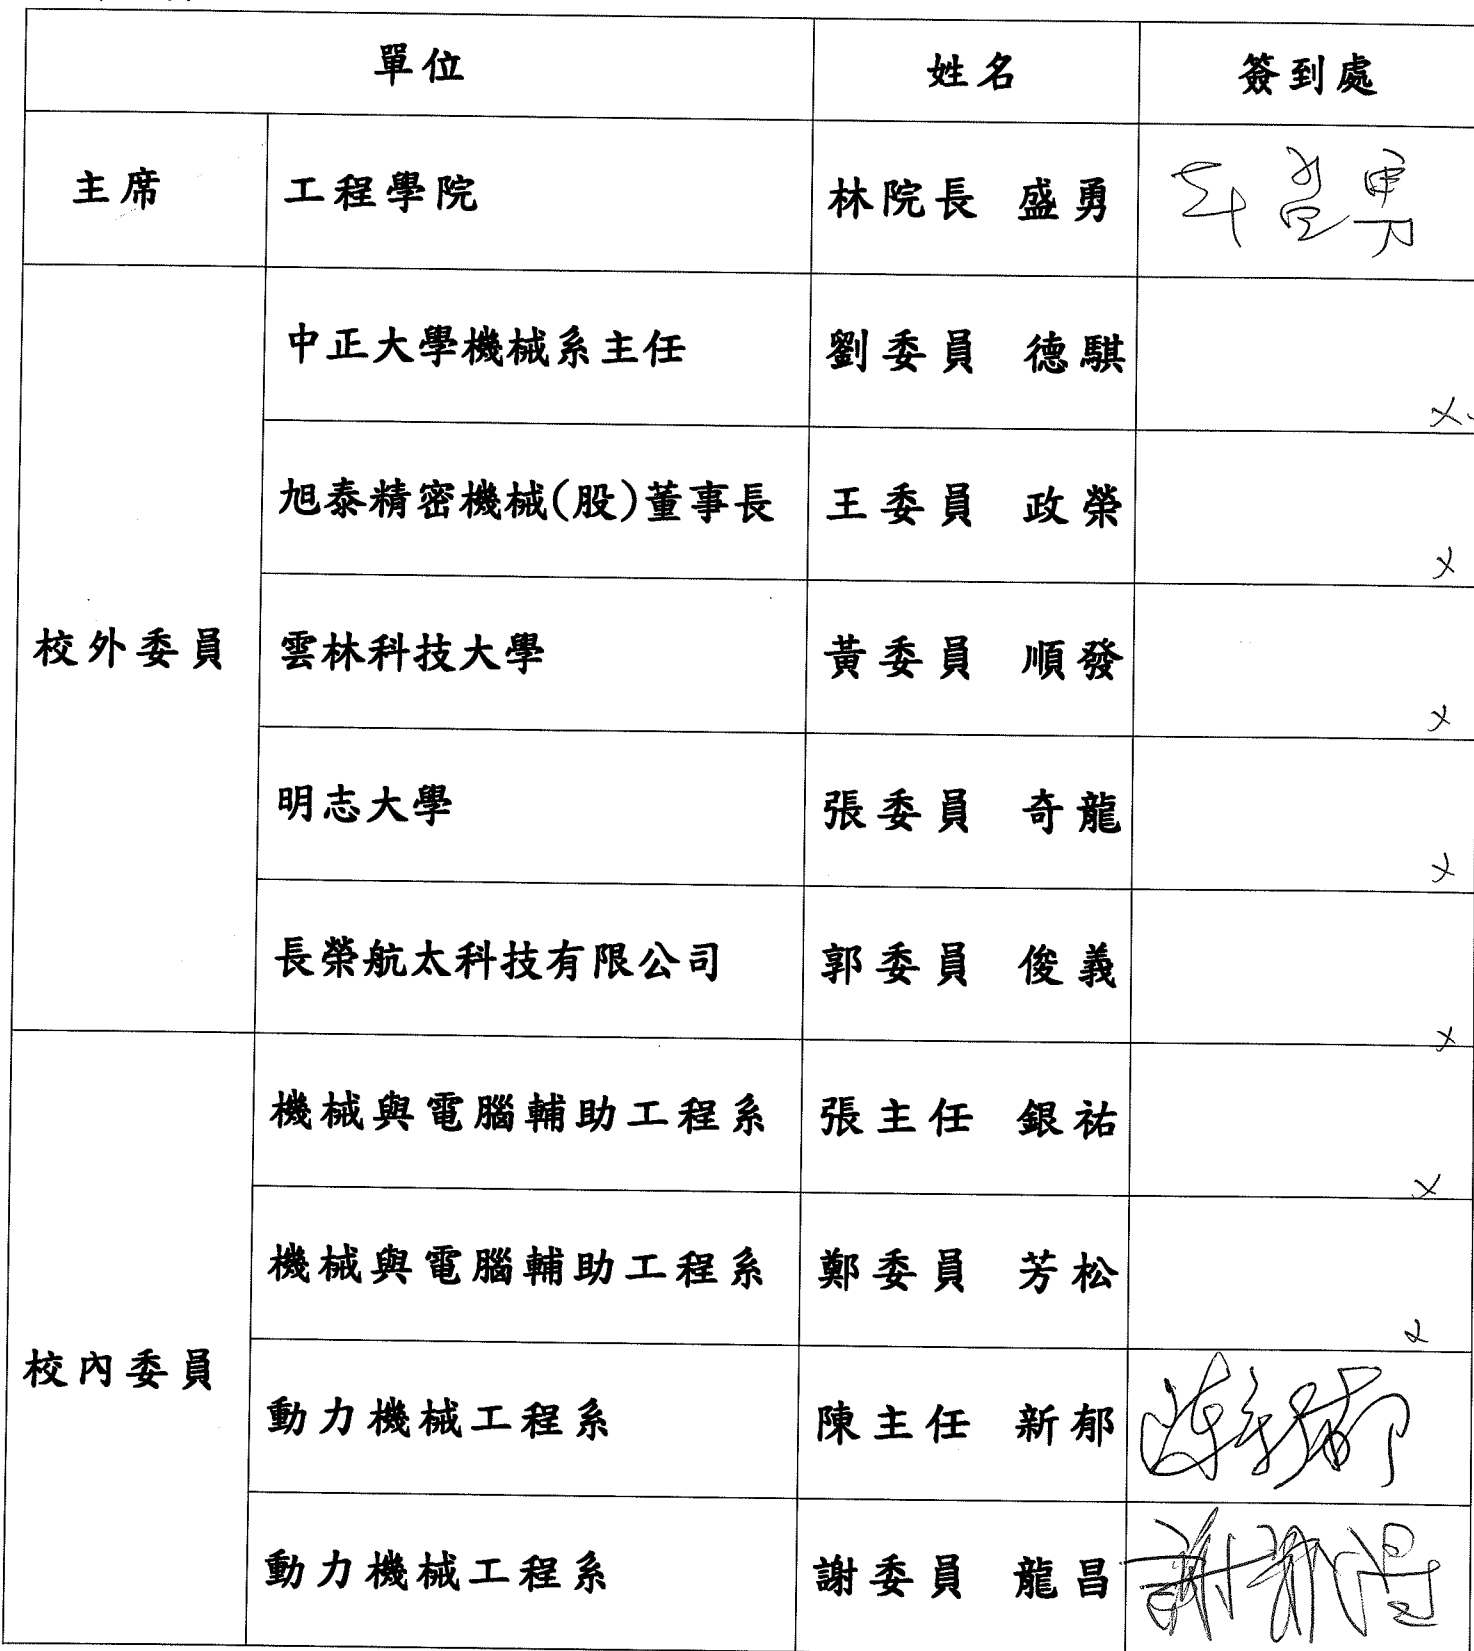 單位 姓名 簽到處
主席 工程學院 林院長 盛勇
校外委員
中正大學機械系主任 劉委員 德騏
旭泰精密機械(股)董事長 王委員 政榮
雲林科技大學 黃委員 順發
明志大學 張委員 奇龍
長榮航太科技有限公司 郭委員 俊義
校內委員
機械與電腦輔助工程系 張主任 銀祐
機械與電腦輔助工程系 鄭委員 芳松
動力機械工程系 陳主任 新郁 陳新郁
動力機械工程系 謝委員 龍昌